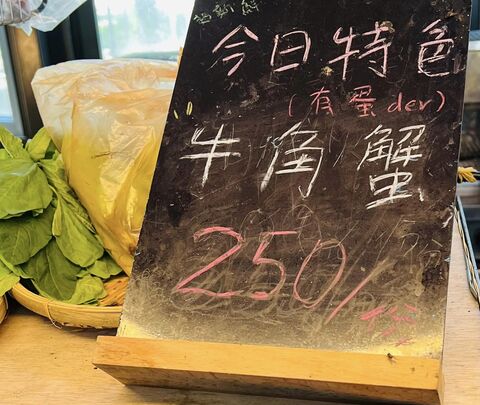 今日特色
(有蛋der)
牛角蟹
250/份